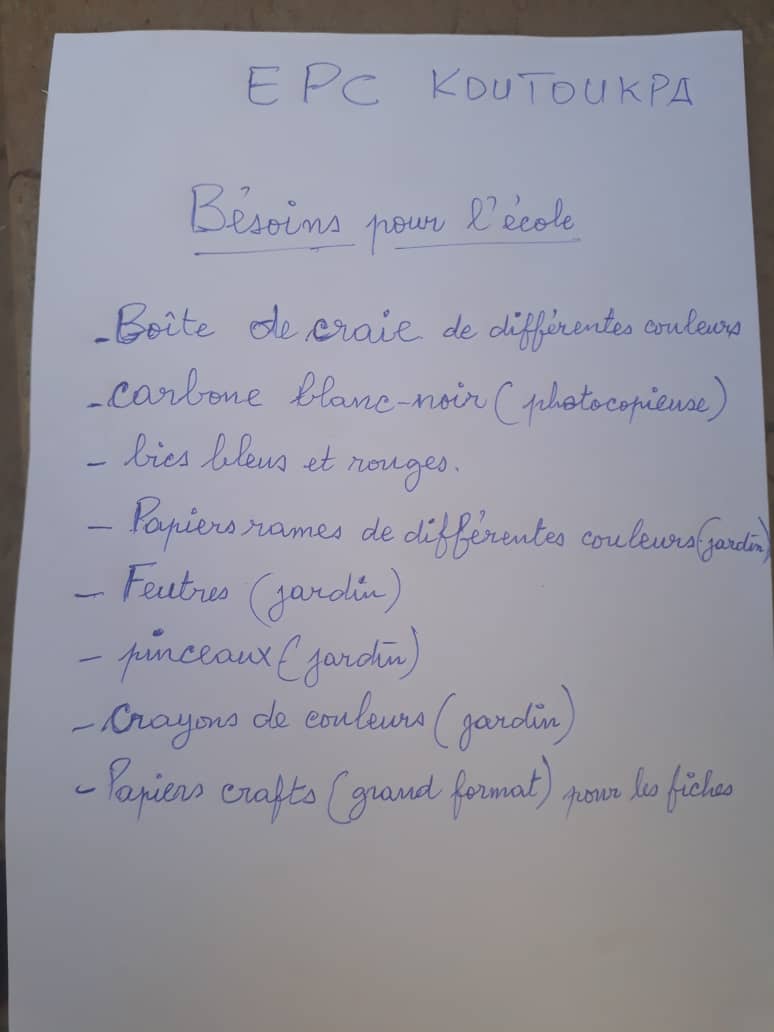 EPC KOUTOUKPA
Bésoins pour l'école
- Boîte de craie de différentes couleurs
- carbone blanc-noir (photocopieuse)
- bics bleus et rouges.
- Papiers rames de différentes couleurs (jardin)
- Feutres (jardin)
- pinceaux (jardin)
- Crayons de couleurs (jardin)
- Papiers crafts (grand format) pour les fiches